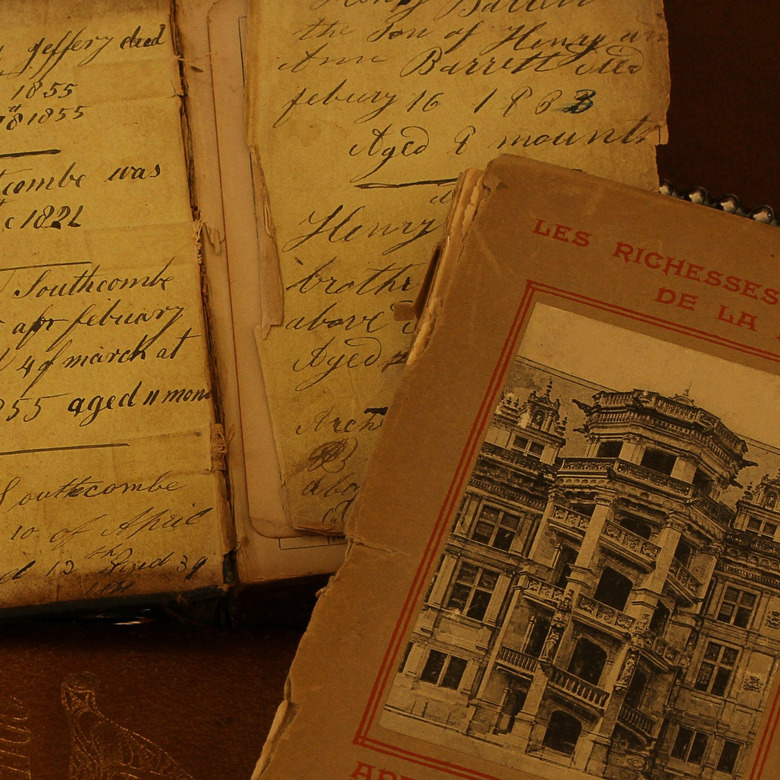 Jeffery died
1855
1855
combe was
1821
Southcombe
apr febuary
4 of march at
855 aged 11 mon
Southcombe
10 of April
Henry Barrett
the Son of Henry an
Ann Barrett died
febury 16 1833
Aged 9 mounth
Henry
brothr
above
Aged
LES RICHESSES
DE LA